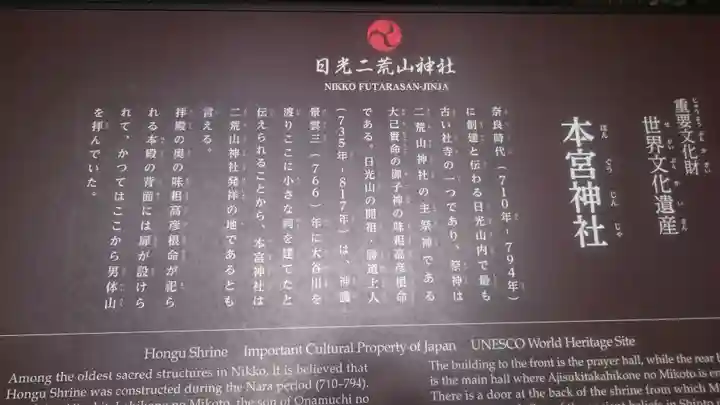 日光二荒山神社
NIKKO FUTARASAN-JINJA
重要文化財
世界文化遺産
本宮神社
ほん ぐう じん じゃ
奈良時代（710年-794年）
に創建と伝わる日光山内で最も
古い社寺の一つであり、祭神は
二荒山神社の主祭神である
大己貴命の御子神の味耜高彦根命
である。日光山の開祖・勝道上人
（735年-817年）は、神護
景雲三（766）年に大谷川を
渡りここに小さな祠を建てたと
伝えられることから、本宮神社は
二荒山神社発祥の地であるとも
言える。
拝殿の奥の味耜高彦根命が祀ら
れる本殿の背面には扉が設けら
れて、かつてはここから男体山
を拝んでいた。
Hongu Shrine Important Cultural Property of Japan UNESCO World Heritage Site
Among the oldest sacred structures in Nikko. It is believed that
Hongu Shrine was constructed during the Nara period (710-794).
no Mikoto, the son of Onamuchi no
The building to the front is the prayer hall, while the rear b
is the main hall where Ajisukitakahikone no Mikoto is en
There is a door at the back of the shrine from which M
beliefs in Shinto